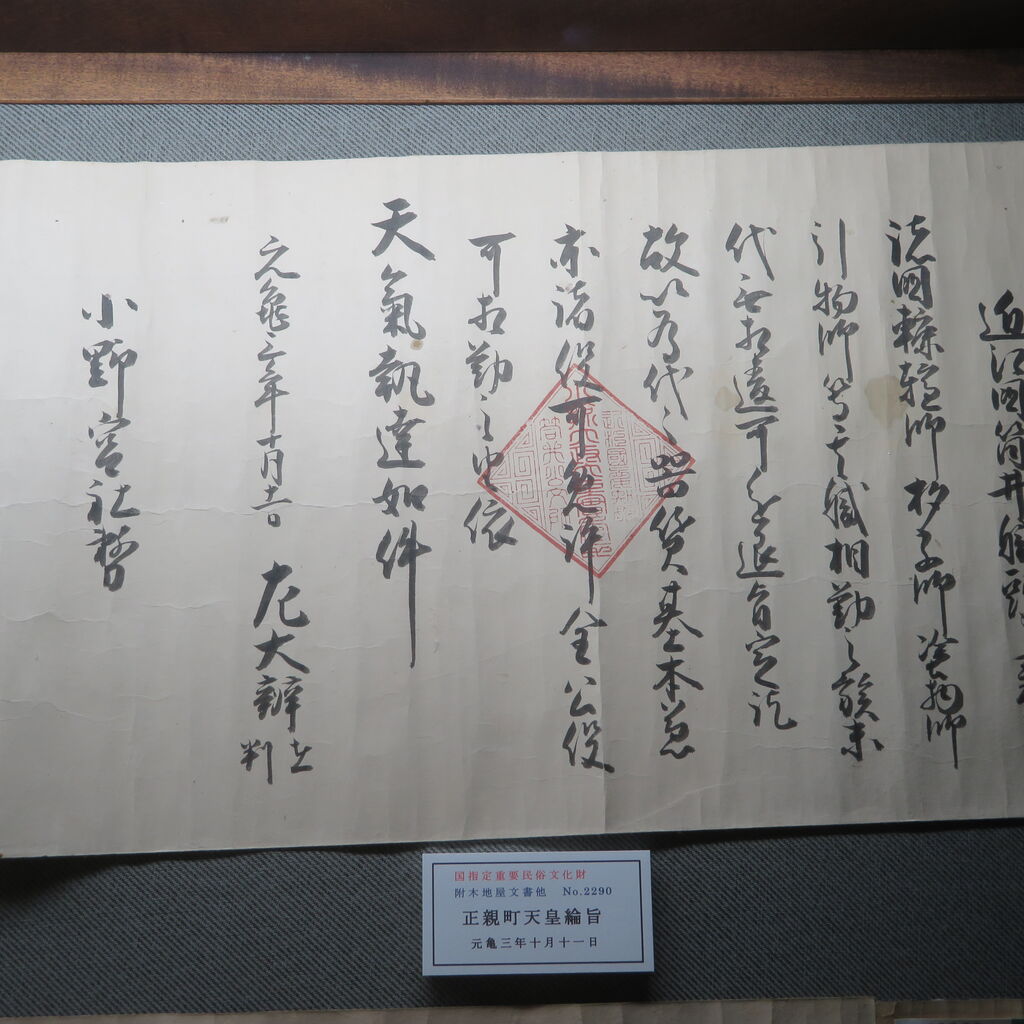 近江国筒井
諸國轆轤師杓子師塗物師
引物師等其職相勤之族末
代無相違可進退旨定訖
故以為代之器質基本兼
亦諸役可免許全公役
可相勤之也依
天氣執達如件
元龜三年十月十一日 左大辨 在判
小野宮社務
国指定重要民俗文化財
附木地屋文書他 No.2290
正親町天皇綸旨
元亀三年十月十一日